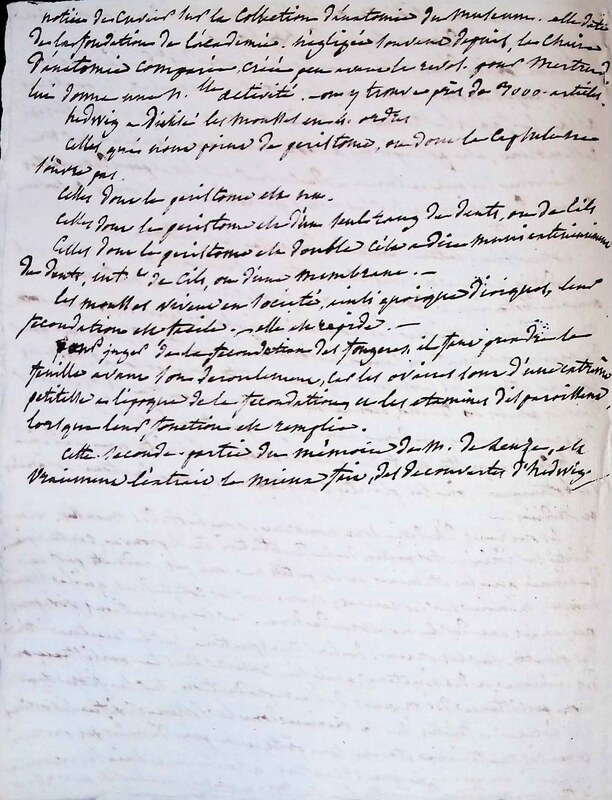 notice de Cuvier sur la Collection d'anatomie du Museum. elle date
de la fondation de l'académie. négligée souvent depuis, la chaire
d'anatomie comparée, créée peu avant le revol. pour Mertrud,
lui donne une n.lle activité. on y trouve près de 3000 articles
hedwig a divisé les mousses en 4. ordres
Celles, qui n'ont point de peristome, ou dont la Capsule ne
s'ouvre pas.
Celles dont le peristome est nu.
Celles dont le peristome est d'un seul rang de dents, ou de Cils
Celles dont le peristome est double c'est a dire muni extérieurement
de dents, int.t de Cils, ou d'une membrane. –
Les mousses vivent en société, ainsi quoique dioïques, leur
fecondation est facile. elle est rapide. –
pour juger de la fecondation des fougeres, il faut prendre la
feuille avant son deroulement, car les ovaires sont d'une extrême
petitesse a l'epoque de la fecondation, et les etamines disparoissent
lorsque leur fonction est remplie.
Cette seconde partie du mémoire de M. de , est
vraiment l'extrait le mieux fait, des decouvertes d'hedwig